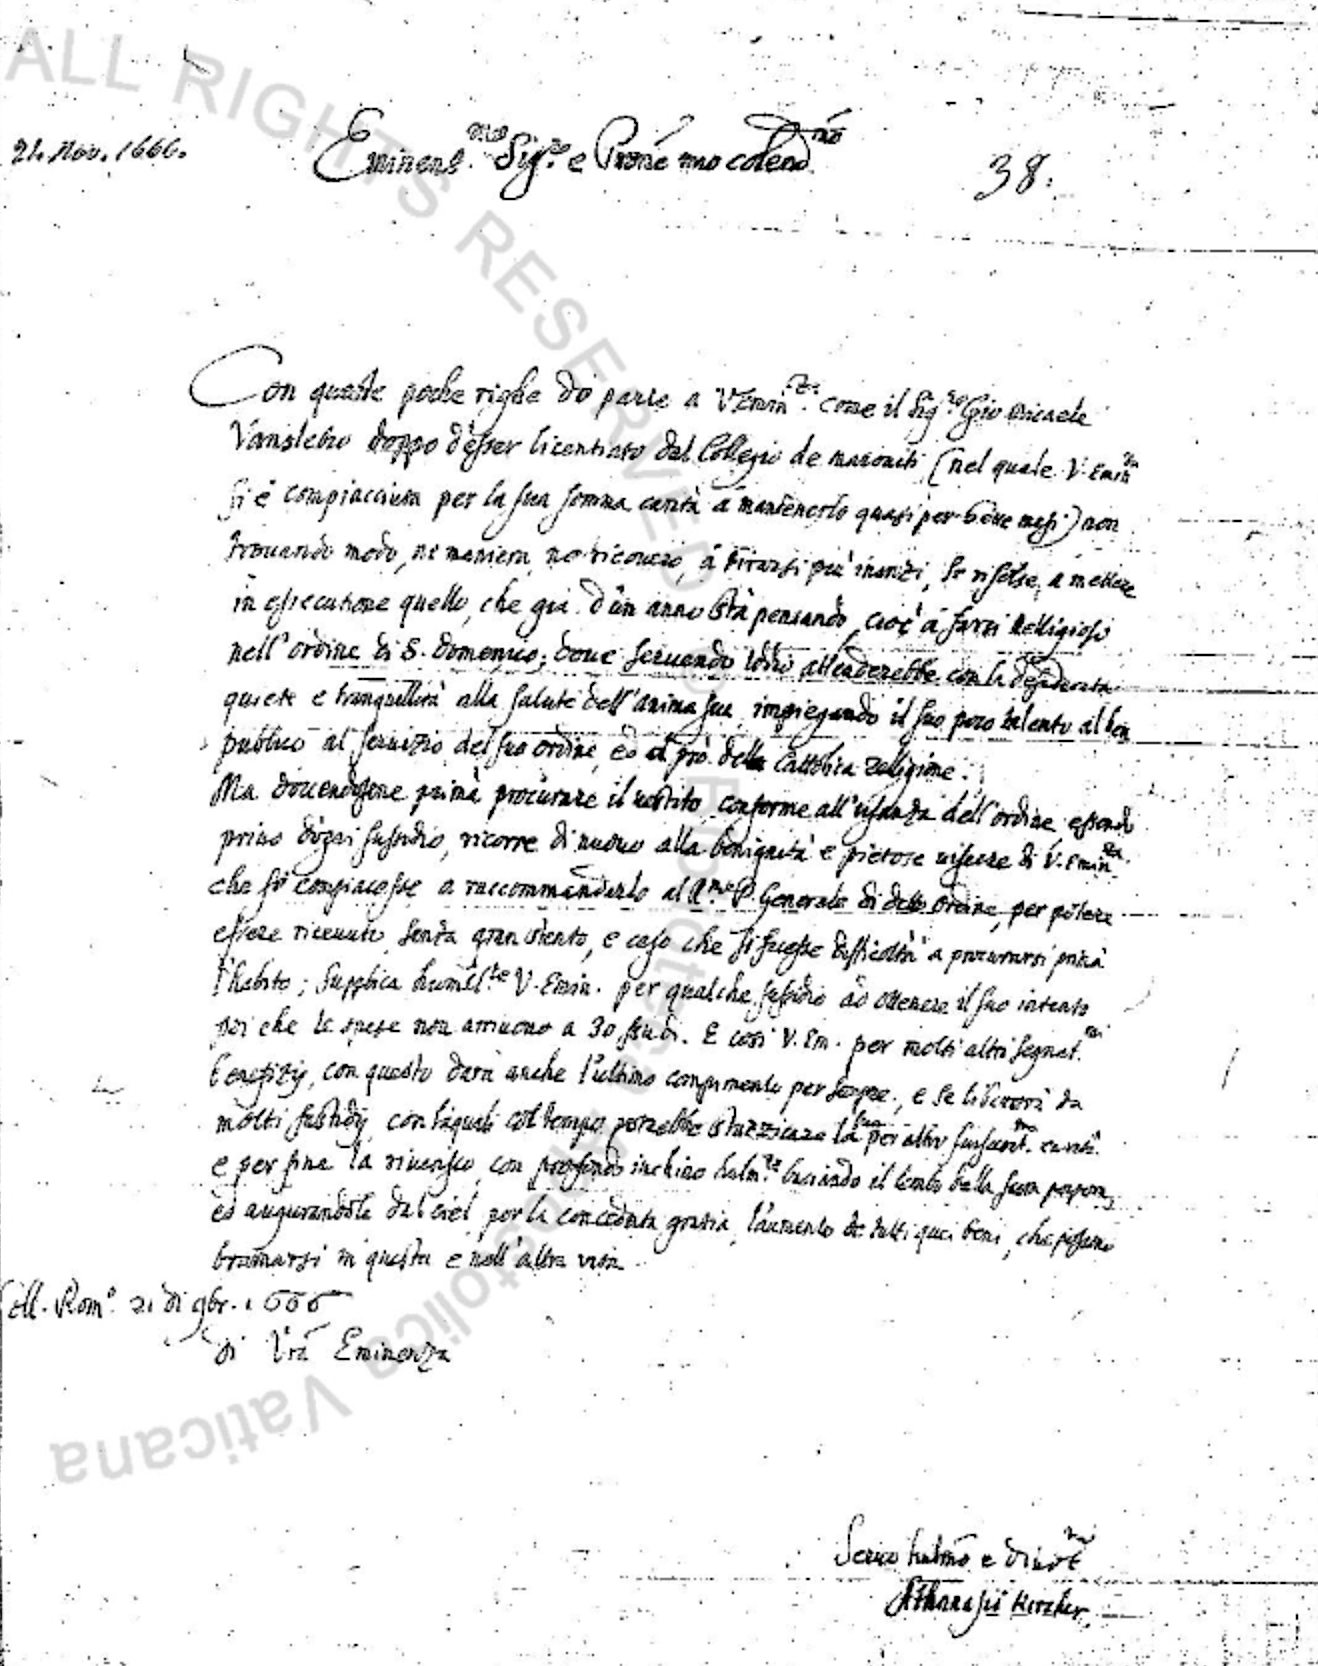 ALL RIGHTS RESERVED
21. Nov. 1666.
Eminent.mo Sig.re e Prone mio colend.mo
38.
Con queste poche righe dò parte a V. Emin.za come il Sig.re Gio Micaele
Vanslebio doppo d'esser licentiato dal Collegio de maroniti (nel quale V. Emin.za
si è compiacciuta per la sua somma carità à mantenerlo quasi per mesi) non
trouando modo, ne maniera, ne ricouero, à tirarsi più inanzi, se risolse, a mettere
in essecutione quello, che già d'un anno stà pensando, cioè à farsi Religioso
nell'ordine di S. Domenico; doue seruendo Iddio attenderebbe con la desiderata
quiete e tranquillità alla salute dell'anima sua, impiegando il suo poco talento al ben
publico al seruizio del suo ordine, ed al prò della Cattolica Religione.
Ma douendosene prima procurare il uestito conforme all'usanza dell'ordine, essendo
priuo d'ogni sussidio, ricorre di nuouo alla benignità e pietose uiscere di V. Emin.za
che si compiacesse a raccommandarlo al R.mo P. Generale di detto Ordine, per potere
essere riceuuto senza gran stento, e caso che si fusse difficoltà a procurarsi prima
l'habito; supplica humil.te V. Emin. per qualche sussidio ad ottenere il suo intento
poi che le spese non arriuono a 30 scudi. E così V. Em. per molti altri segnal.mi
benefizij, con questo darà anche l'ultimo compimento per sempre, e se libererà da
molti fastidij, con li quali col tempo potrebbe stuzzicare la sua per altro carità.
e per fine la riuerisco, con profondo inchino hulm.te baciando il lembo della sacra porpora,
ed augurandole dal ciel per la conceduta grazia, l'aumento de tutti quei beni, che possono
bramarsi in questa e nell'altra vita
Coll. Rom.o 21 di 9br. 1666
di Vrã Eminenza
Seruo hulmo e diuot.mo
Athanasio Kircher
Biblioteca Apostolica Vaticana